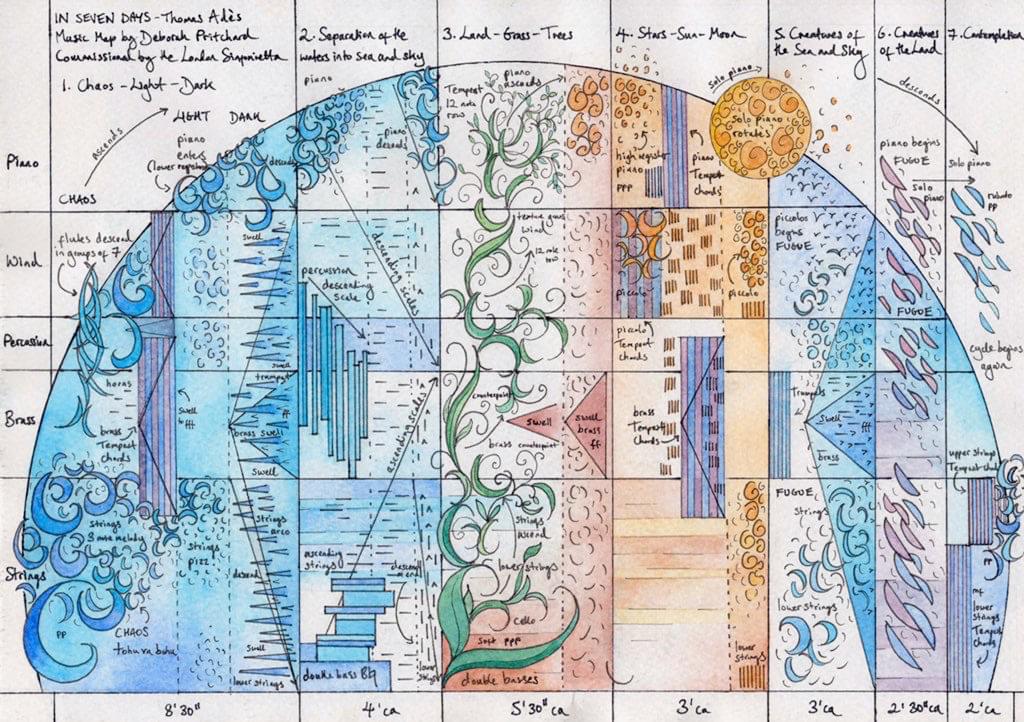 IN SEVEN DAYS - Thomas Adès
Music Map by Deborah Pritchard
Commissioned by the London Sinfonietta
1. Chaos - Light - Dark
2. Separation of the
waters into Sea and sky
3. Land - Grass - Trees
4. Stars - Sun - Moon
5. Creatures of
the Sea and Sky
6. Creatures
of the Land
7. Contemplation
Piano
ascends
LIGHT DARK
piano
enters
(lower register)
descends
CHAOS
piano
piano
descends
Tempest
12 note
rows
piano
ascends
high register
piano
ppp
piano
Tempest
chords
Solo piano
Solo piano
rotates
descends
piano begins
FUGUE
solo
piano
Solo piano
rubato
pp
Wind
flutes descend
in groups of 7
swell
descending scales
texture grows
wind
12 note
row
piccolo
piccolo
piccolos
begins
FUGUE
FUGUE
Percussion
percussion
descending
scale
piccolo
Tempest
chords
cycle begins
again
Brass
horns
brass
Tempest
chords
swell
to
fff
swell
trumpet
ff
brass swell
swell
ascending scales
counterpoint
swell
brass counterpoint
swell
brass
ff
brass
Tempest
chords
Trumpets
swell
brass
upper strings
Tempest chords
Strings
strings
3 note melody
strings
pizz
strings
arco
descend
swell
lower strings
pp
CHAOS
tohu va bohu
ascending
strings
descend
double bass B♭
lower
strings
strings
ascend
lower strings
cello
soft ppp
double basses
lower
strings
FUGUE
strings
lower strings
pp
mf
lower
strings
Tempest
chords
8'30"
4'ca
5'30"ca
3'ca
3'ca
2'30"ca
2'ca